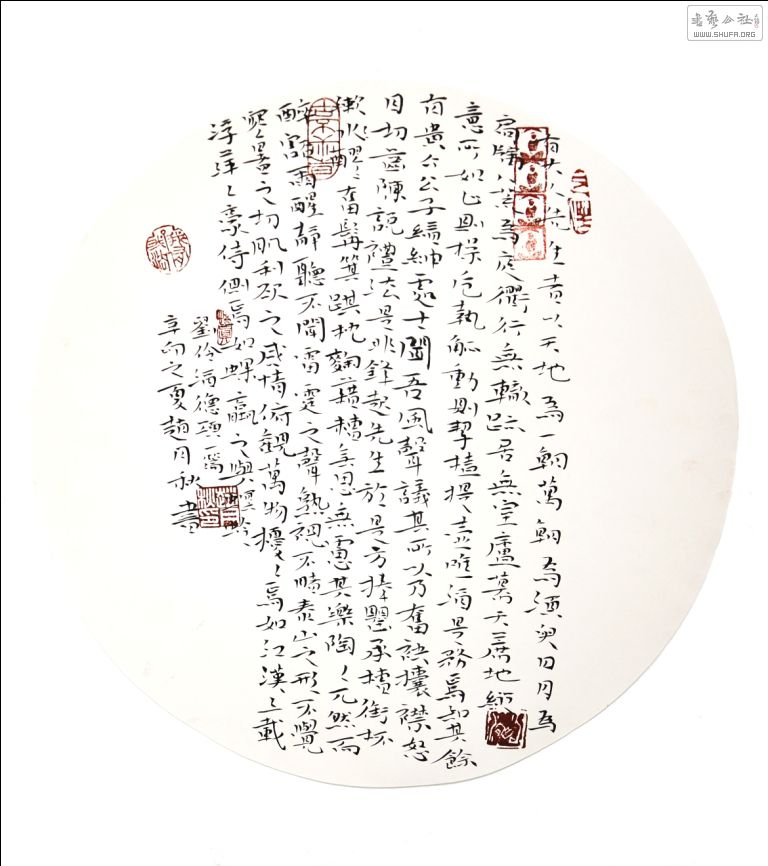 有大人先生者以天地為一朝萬朝為須臾日月為
扃牖八荒為庭衢行無轍跡居無室廬幕天席地縱
意所如止則操卮執觚動則挈榼提壺唯酒是務焉知其餘
有貴介公子縉紳處士聞吾風聲議其所以乃奮袂攘襟怒
目切齒陳說禮法是非鋒起先生於是方捧罌承槽銜杯
漱醪奮髯箕踞枕麴藉糟無思無慮其樂陶〻兀然而
醉豁爾醒靜聽不聞雷霆之聲熟視不睹泰山之形不覺
寒暑之切肌利欲之感情俯觀萬物擾〻焉如江漢之載
浮萍二豪侍側焉如蜾蠃之與螟蛉
劉伶酒德頌一篇
辛卯之夏趙月秋書
書藝公社
WWW.SHUFA.ORG